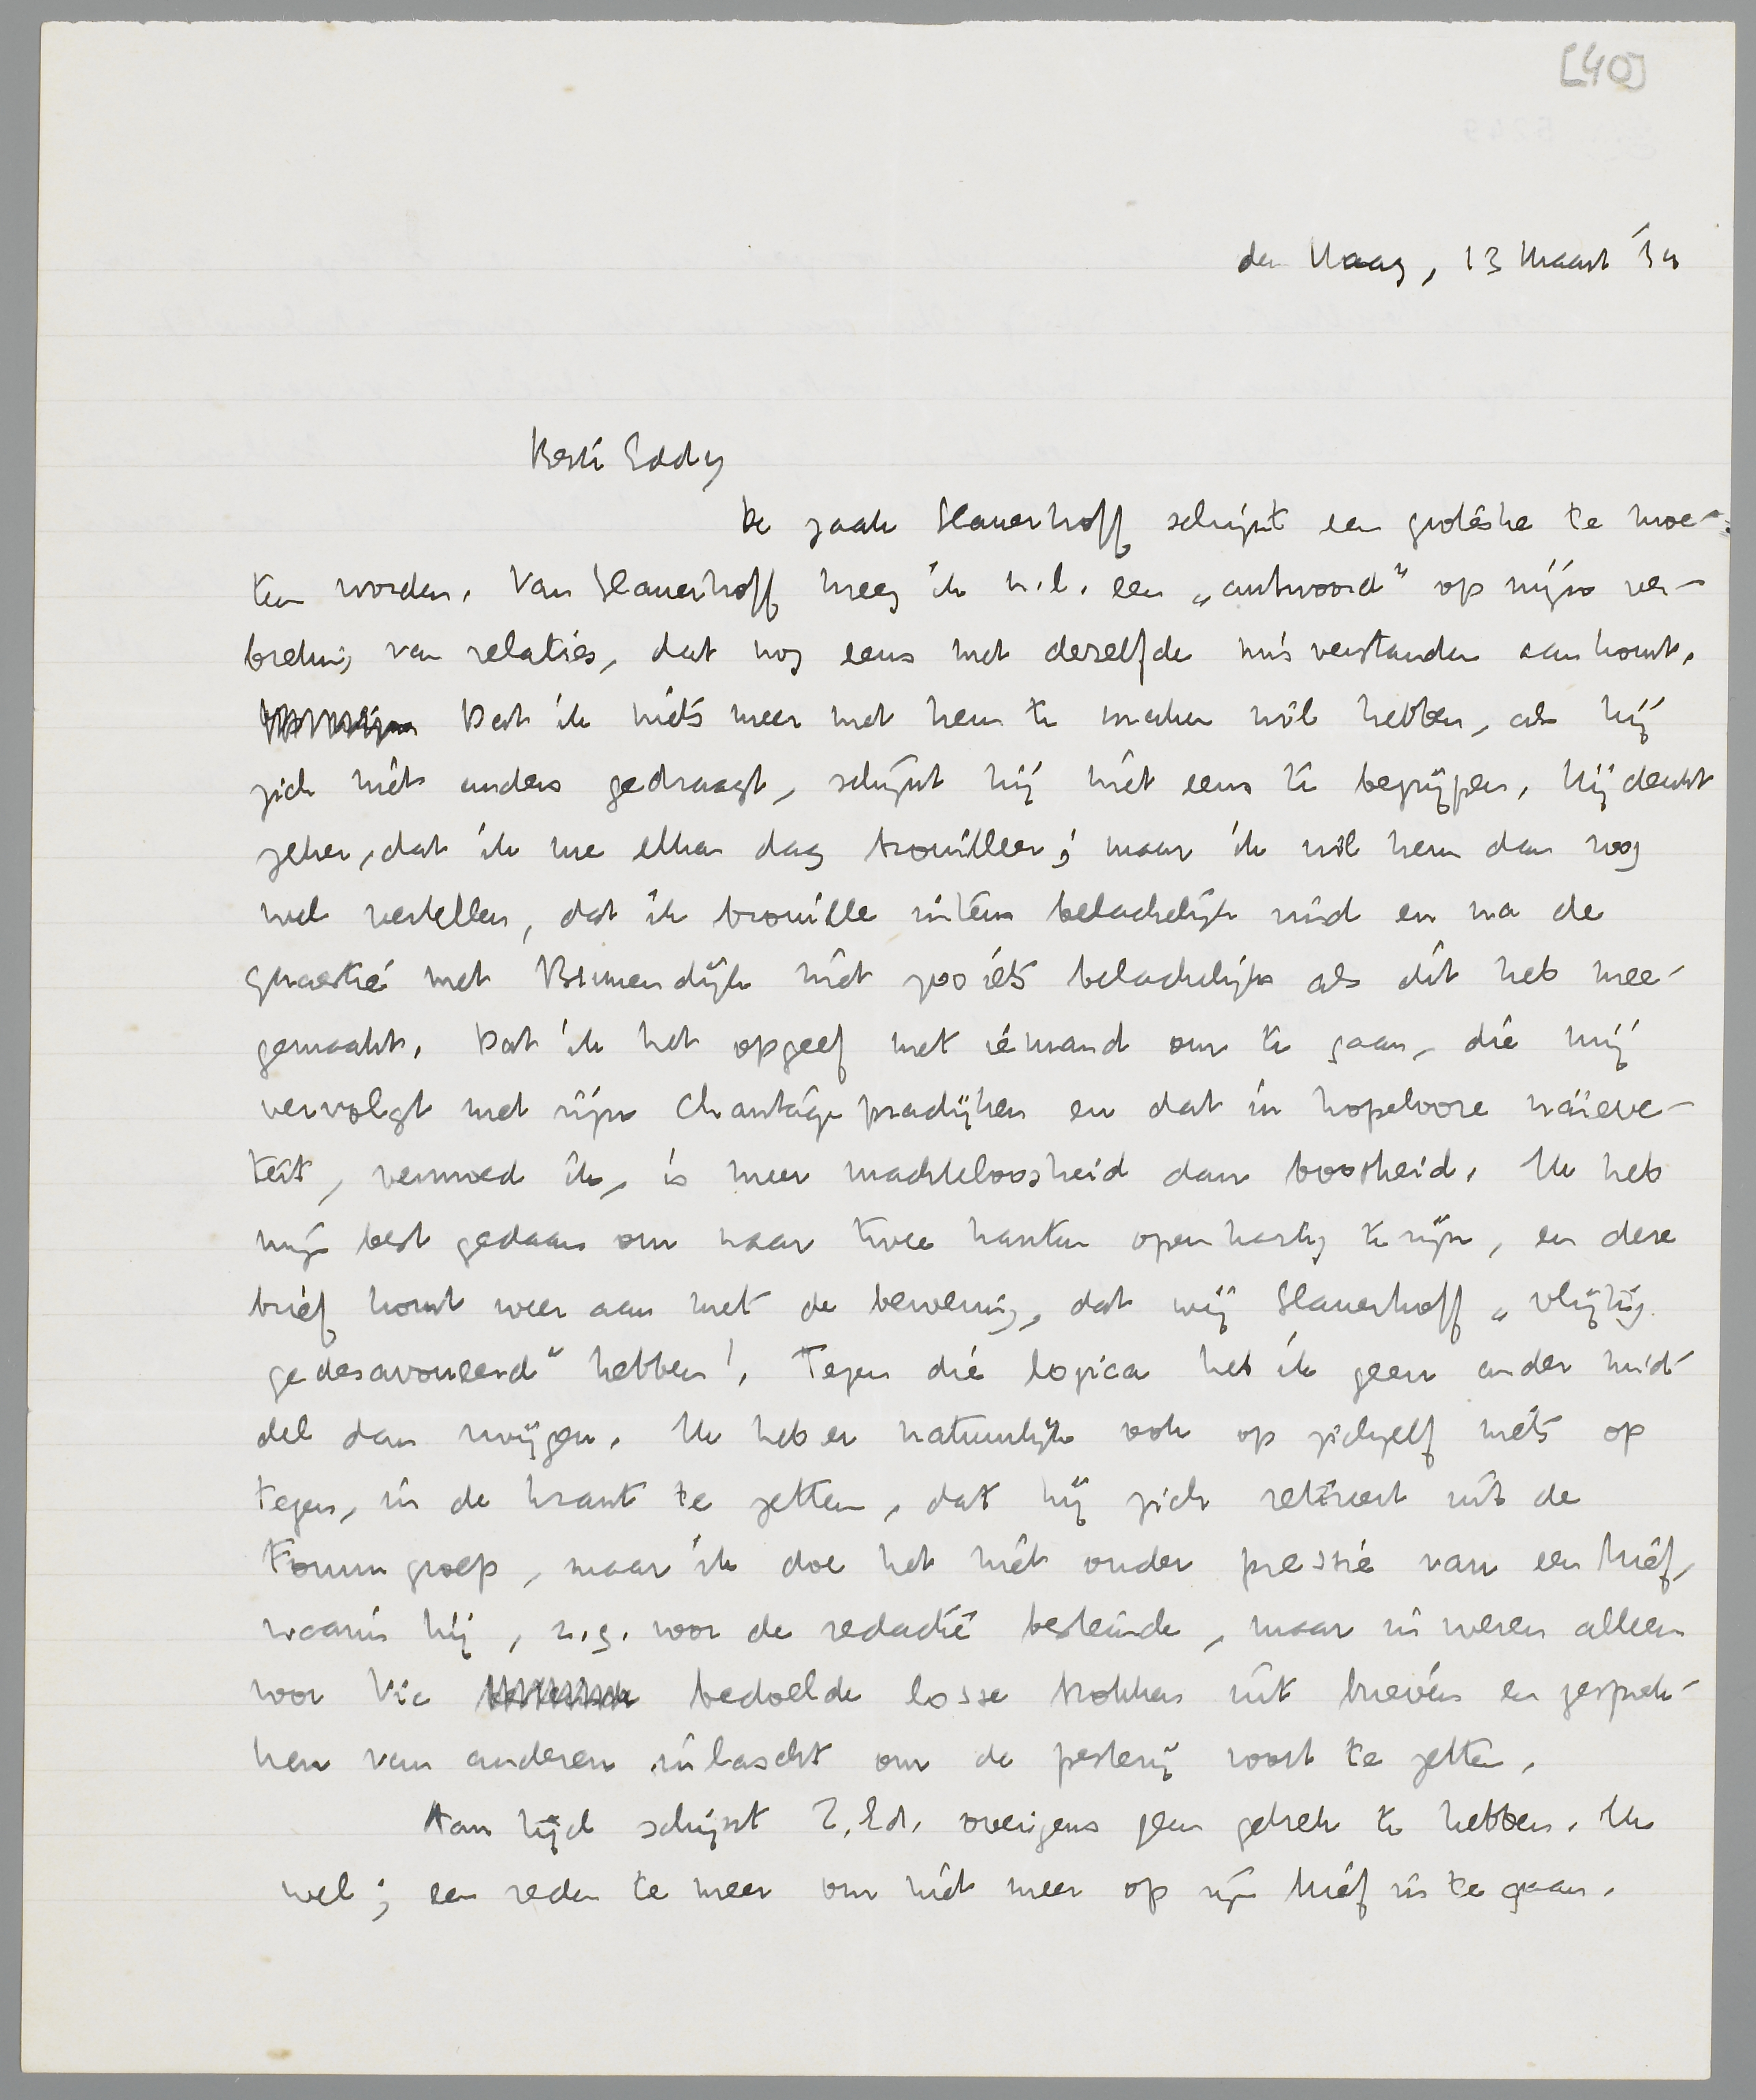 [40]
den Haag, 13 Maart '34
Beste Eddy
De zaak Slauerhoff schijnt een groteske te moe-
ten worden. Van Slauerhoff kreeg ik n.l. een „antwoord" op mijn ver-
breking van relaties, dat nog eens met dezelfde misverstanden aankomt.
Dat ik niets meer met hem te maken wil hebben, als hij
zich niet anders gedraagt, schijnt hij niet eens te begrijpen. Hij denkt
zeker, dat ik me elken dag brouilleer; maar ik wil hem dan nog
wel vertellen, dat ik brouilles uiterst belachelijk vind en na de
quaestie met Binnendijk niet zooiets belachelijks als dit heb mee-
gemaakt. Dat ik het opgeef met iemand om te gaan, die mij
vervolgt met zijn chantagepractijken en dat in hopelooze naïeve-
teit, vermoed ik, is meer machteloosheid dan boosheid. Ik heb
mijn best gedaan om naar twee kanten openhartig te zijn, en deze
brief komt weer aan met de bewering, dat wij Slauerhoff „vlijtig
gedesavoueerd" hebben! Tegen die logica heb ik geen ander mid-
del dan zwijgen. Ik heb er natuurlijk ook op zichzelf niets op
tegen, in de krant te zetten, dat hij zich retireert uit de
Forumgroep, maar ik doe het niet onder pressie van een brief,
waarin hij, z.g. voor de redactie bestemde, maar in wezen alleen
voor Vic bedoelde losse brokken uit brieven en gesprek-
ken van anderen inlascht om de pesterij voort te zetten.
Aan tijd schijnt Z.Ed. overigens geen gebrek te hebben. Ik
wel; een reden te meer om niet meer op zijn brief in te gaan.